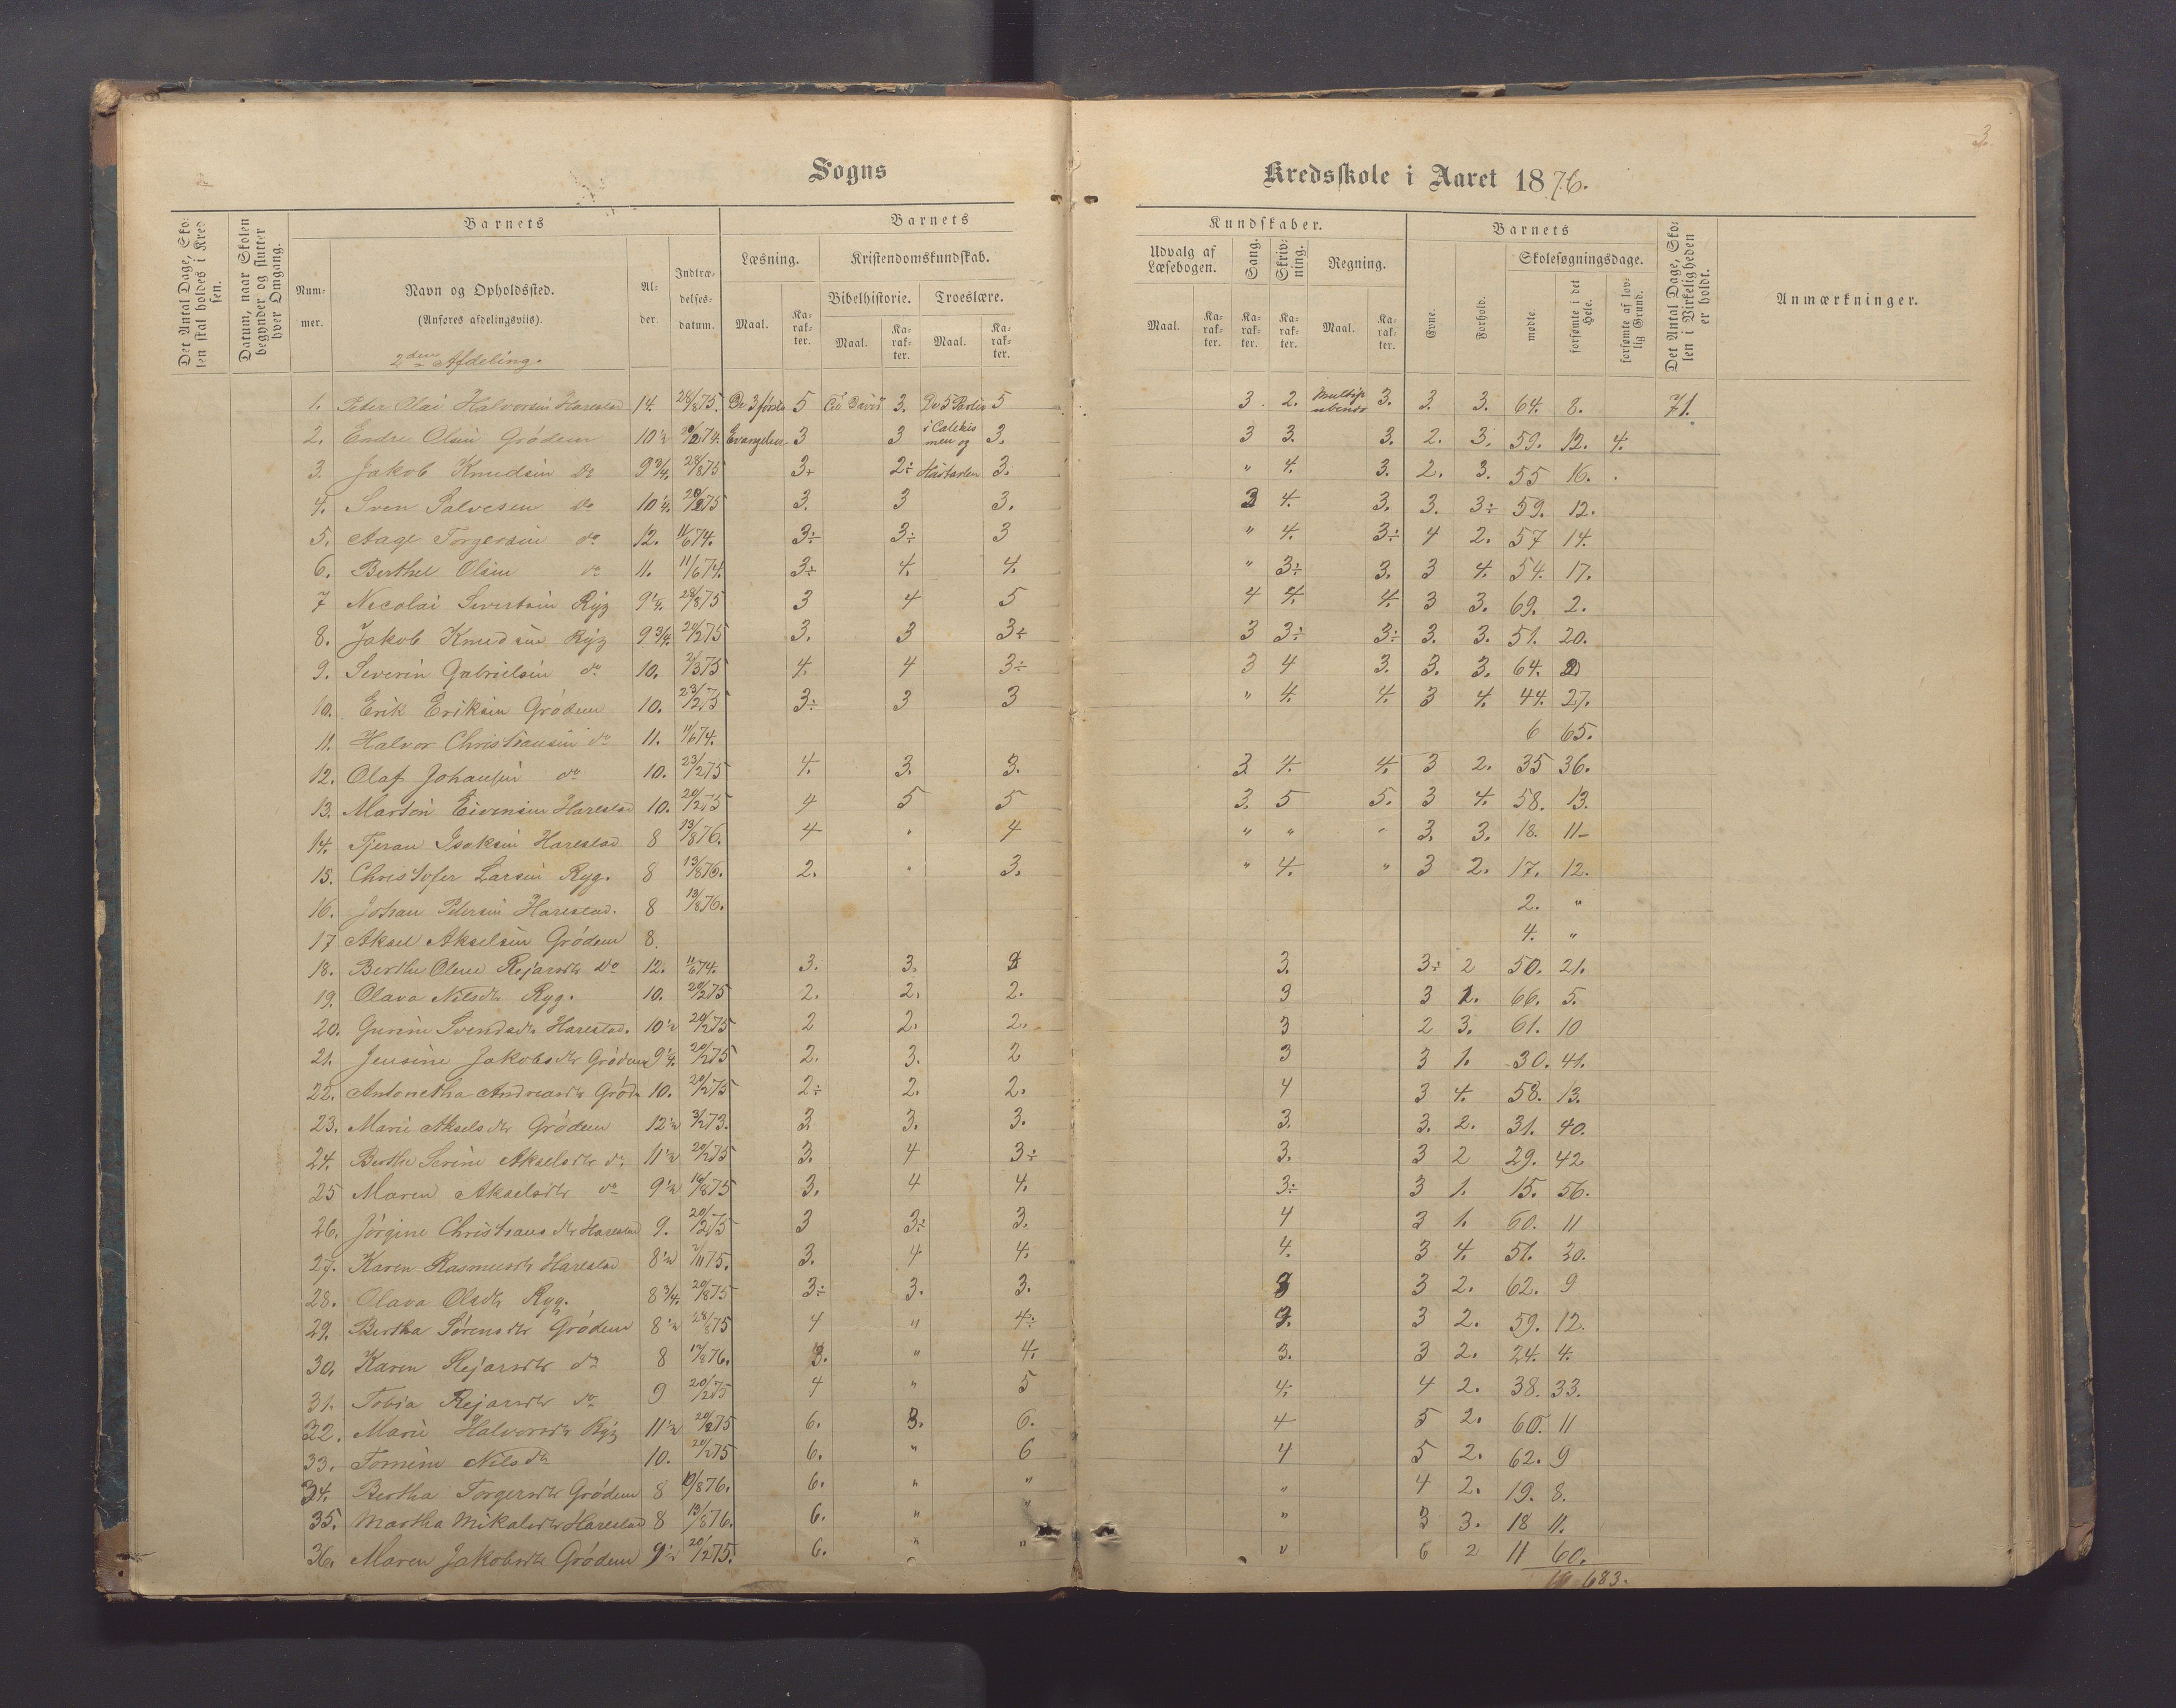 3
Sogns Kredsskole i Aaret 1876.
Det Antal Dage, Skolen skal holdes i Kredsen.
Datum, naar Skolen begynder og slutter hver Omgang.
Barnets
Nummer.
Navn og Opholdssted.
(Anføres afdelingsviis).
2den Afdeling.
Alder.
Indtrædelsesdatum.
Barnets Kundskaber.
Læsning.
Maal.
Karakter.
Kristendomskundskab.
Bibelhistorie.
Maal.
Karakter.
Troeslære.
Maal.
Karakter.
Udvalg af Læsebogen.
Maal.
Karakter.
Sang.
Karakter.
Skrivning.
Karakter.
Regning.
Maal.
Karakter.
Barnets
Evne.
Forhold.
Skolesøgningsdage.
mødte.
forsømte i det Hele.
forsømte af lovlig Grund.
Det Antal Dage, Skolen i Virkeligheden er holdt.
Anmærkninger.
1. Peter Olai Halvorsen Harestad 14. 28/8 75. De 3 første 5 3. 5 3. 2. 3. 3. 3. 64. 8. 71.
2. Endre Olsen Grødem 10½ 74. Evangelier 3 3 3. 3 3. 3. 2. 3. 59. 12. 4.
3. Jakob Knudsen do 9¾. 28/8 75 3÷ 2÷ 3. " 4. 3. 2. 3. 55 16.
4. Sven Salvesen do 10¼. 20/2 75 3. 3 3. 3 4. 3. 3. 3÷ 59. 12.
5. Aage Torgersen do 12. 11/6 74. 3÷ 3÷ 3 " 4. 3÷ 4 2. 57 14.
6. Berthel Olsen do 11. 11/6 74. 3÷ 4. 4. " 3÷ 3. 3 4. 54. 17.
7 Necolai Sivertsen Ryg 9¼. 28/8 75 3 4 5 4 4. 4. 3 3. 69. 2.
8. Jakob Knudsen Ryg 9¾. 75 3. 3 3÷ 3 3÷ 3÷ 3. 3. 51. 20.
9. Severin Gabrielsen do 10. 75 4. 4 3÷ 3 4 3. 3. 3. 64.
10. Erik Eriksen Grødem 10. 23/2 75 3÷ 3 3 " 4. 4. 3 4. 44. 27.
11. Halvor Christiansen do 11. 11/6 74. 6 65.
12. Olaf Johansen do 10. 23/2 75 4. 3. 3. 3 4. 4. 3 2. 35 36.
13. Marten Eivensen Harestad 10. 20/2 75 4 5 5 3. 5 5. 3 4. 58. 13.
14. Tjeran Isaksen Harestad 8 13/8 76. 4 " 4 " " " 3. 3. 18. 11
15. Christofer Larsen Ryg. 8 13/8 76. 2. " 3. " 4. " 3 2. 17. 12.
16. Johan Petersen Harestad. 8 13/8 76. 2. "
17 Aksel Akselsen Grødem 8. 4. "
18. Berthe Oline Rejarsdtr do 12. 11/6 74. 3. 3. 3. 3÷ 2 50. 21.
19. Olava Nilsdtr Ryg. 10. 20/2 75 2. 2. 2. 3 3 1. 66. 5.
20. Gurine Svendsdtr Harestad. 10½ 20/2 75 2 2. 2. 3 2 3. 61. 10
21. Jensine Jakobsdtr Grødem 9¼. 20/2 75 2. 3. 2 3 3 1. 30. 41.
22. Antonetha Andreasdtr Grød 10. 20/2 75 2÷ 2. 2. 4 3 4. 58. 13.
23. Marie Akselsdtr Grødem 12½ 73. 3. 3. 3. 3. 3. 2. 31. 40.
24. Berthe Serine Akselsdtr do 11½ 20/2 75 3. 4 3÷ 3. 3 2 29. 42
25 Maren Akselsdtr do 9½ 16/8 75 3. 4 4. 3÷ 3 1. 15. 56.
26. Jørgine Christiansdtr Harestad 9. 20/2 75 3 3÷ 3. 4 3 1. 60. 11
27. Karen Rasmusdtr Harestad 8½ 75. 3. 4 4. 4. 3 4. 51. 20.
28. Olava Olsdtr Ryg. 8¾. 20/8 75 3÷ 3. 3. 3 3 2. 62. 9
29. Bertha Sørensdtr Grødem 8½ 28/8 75 4 " 4÷ 3. 3 2. 59. 12.
30. Karen Rejarsdtr do 8 76. 3. " 4. 3. 3 2. 24. 4.
31. Tobia Rejarsdtr do 9 20/2 75 4 " 5 4. 4 2. 38. 33.
32. Marie Halvorsdtr Ryg 11½ 20/2 75 6. 3. 6. 4 5 2. 60. 11
33. Tomine Nilsdtr 10. 20/2 75 6. " 6 4 5 2. 62. 9
34. Bertha Torgersdtr Grødem 8 76. 6. " " " 4 2. 19. 8.
35. Martha Mikalsdtr Harestad 8 13/8 76. 6. " " " 3 3. 18 11.
36. Maren Jakobsdtr Grødem 9½ 20/2 75. 6. " " " 6 2 11 60.
683.